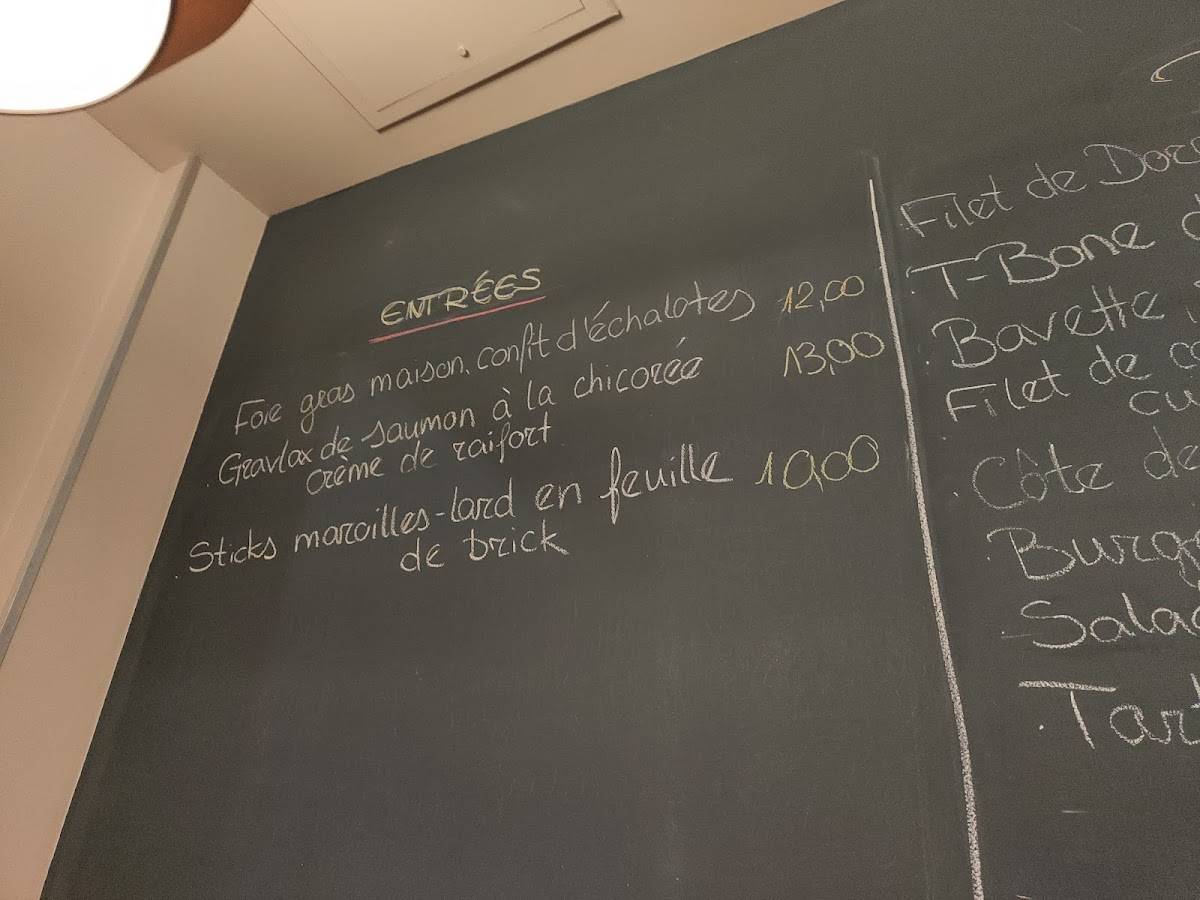 ENTRÉES
Foie gras maison, confit d'échalotes 12,00
. Gravlax de saumon à la chicorée 13,00
crème de raifort
. Sticks maroilles-lard en feuille 10,00
de brick
Filet de
. T-Bone
. Bavette
. Filet de
. Côte de
. Burge
. Salad
. Tart